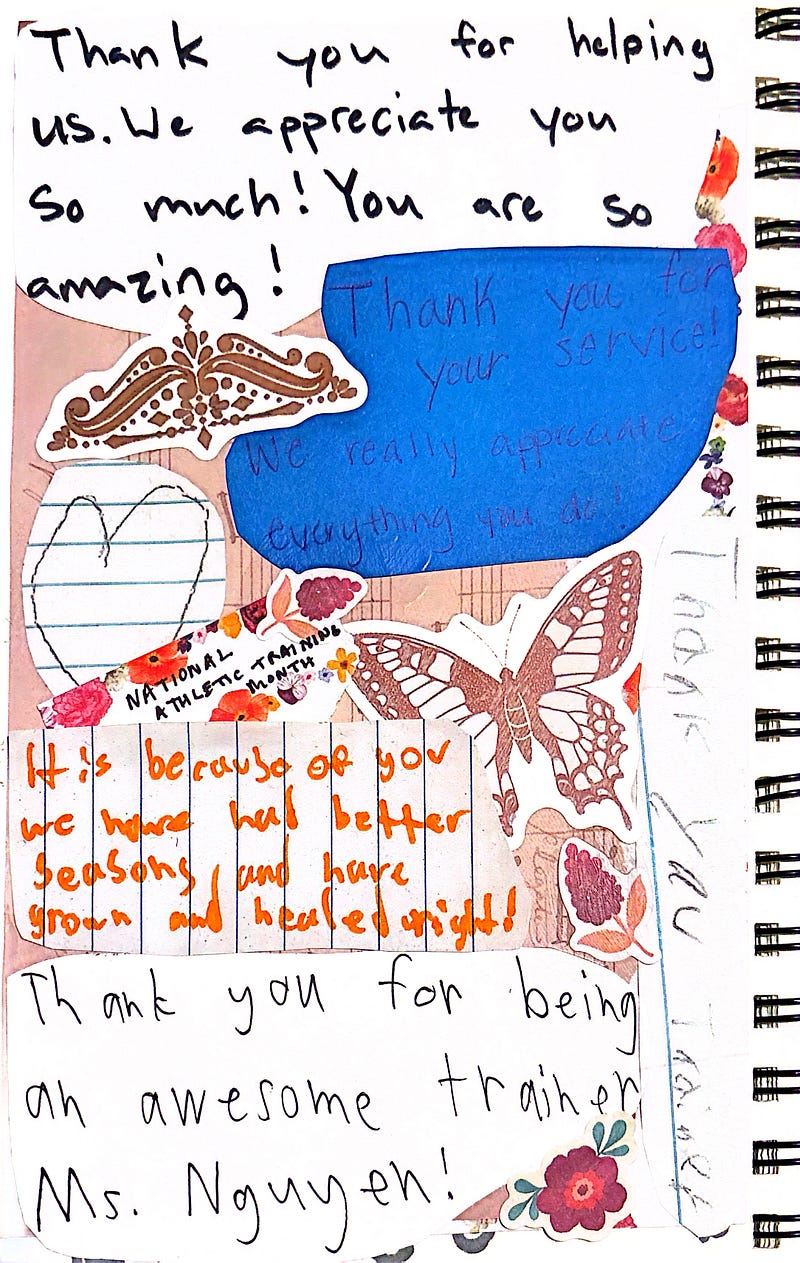 Thank you for helping
us. We appreciate you
so much! You are so
amazing!
Thank you for
your service!
We really appreciate
everything you do!
NATIONAL
ATHLETIC TRAINING
MONTH
It is because of you
we have had better
seasons, and have
grown and healed right!
Thank you for being
an awesome trainer
Ms. Nguyen!
Thank You Trainer